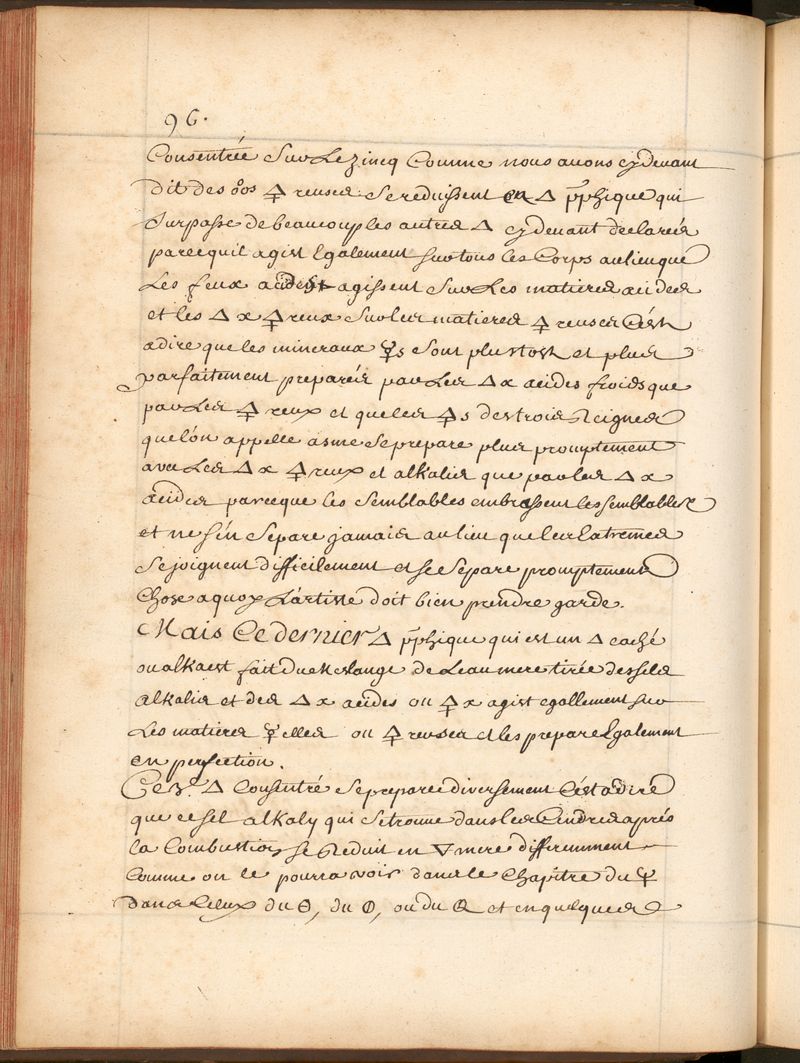 96.
Consentrée Sur Le zincq Comme nous auons cydeuant
dit des ooos 🜍 reuses Se reduissent en 🜂 pphique qui
Surpasse de beaucoup les autres 🜂 cydeuant declarés
parcequil agist Egalement sur tous les Corps aulieuque
Les feux acides agissent Sur Les matieres acides
et les 🜂 x 🜍 reux Sur leur matieres 🜍 reuses C'est
adire que les mineraux ☿s Sont plustost et plus
parfaitement preparés par Les 🜂x acides froids que
par Les 🜍 reux et que les 🜍s des trois Reignes
que l'on appelle asme Se prepare plus promptement
auec Les 🜂 x 🜍 reux et alkalis que par les 🜂 x
acides parceque les Semblables embrassent les semblables
et ne s'en Separe jamais au lieu que les Extremes
Se joignent difficilement et se Separe promptement
Chose a quoy L'artiste doit bien prendre garde.
Mais Ce dernier 🜂 pphique qui est un 🜂 caché
ou alkaest fait du Meslange de Leau mere tirée des sels
alkalis et des 🜂 x acides ou 🜍 x agist egallement sur
Les matieres ☿elles ou 🜍 reuses et les prepare Egalement
en perfection.
Ce 🜂 Consentré Se preparee diuersement C'est a dire
que ce sel alkaly qui Se trouue dans les Cendres aprés
la Combustion se Reduit en 🜄 mere differemment
Comme on le pourra voir dans le Chapitre du
Dans Celuy du 🜔, du 🜕, ou du et en quelques